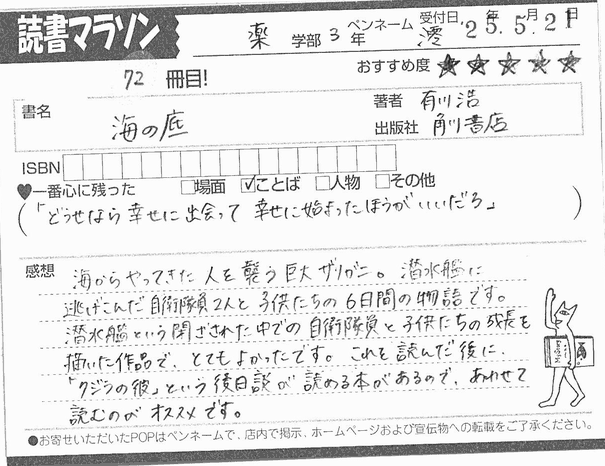 読書マラソン
薬 学部 3 年 ペンネーム 澪 受付日 '25年 5月 21日
72 冊目!
おすすめ度 ★★★★★
書名 海の底
著者 有川浩
出版社 角川書店
ISBN
♥一番心に残った □場面 ☑ことば □人物 □その他
(「どうせなら幸せに出会って 幸せに始まったほうがいいだろ」)
感想
海からやってきた人を襲う巨大ザリガニ。潜水艦に
逃げこんだ自衛隊員2人と子供たちの6日間の物語です。
潜水艦という閉ざされた中での自衛隊員と子供たちの成長を
描いた作品で、とてもよかったです。これを読んだ後に、
「クジラの彼」という後日談が読める本があるので、あわせて
読むのがオススメです。
●お寄せいただいたPOPはペンネームで、店内で掲示、ホームページおよび宣伝物への転載をご了承ください。